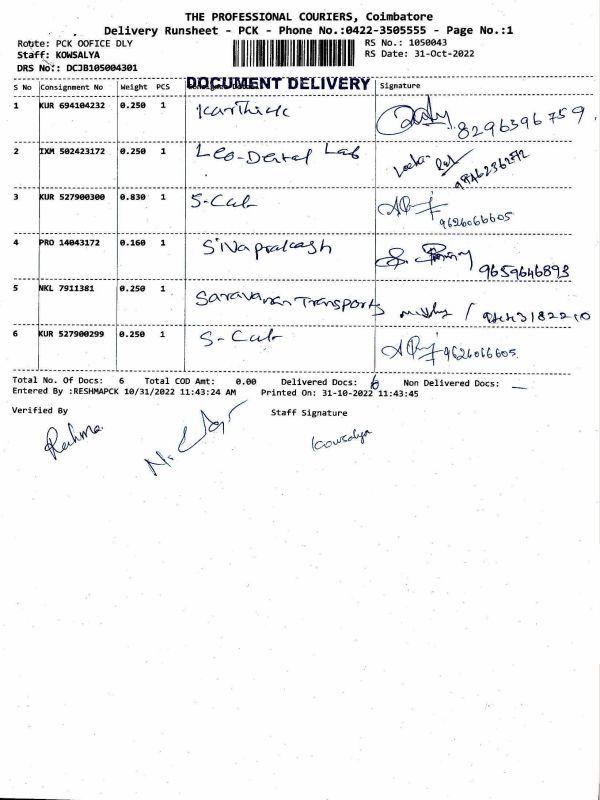 THE PROFESSIONAL COURIERS, Coimbatore
Delivery Runsheet - PCK - Phone No.:0422-3505555 - Page No.:1
Route: PCK OOFICE DLY RS No.: 1050043
Staff: KOWSALYA RS Date: 31-Oct-2022
DRS No:: DCJB105004301
DOCUMENT DELIVERY
S No Consignment No Weight PCS Signature
1 KUR 694104232 0.250 1 Karthick 8296396759
2 IXM 502423172 0.250 1 Leo-Dental Lab
3 KUR 527900300 0.830 1 S-Cab 9626066605
4 PRO 14043172 0.160 1 Sivaprakash 9659646893
5 NKL 7911381 0.250 1 Saravanan Transports
6 KUR 527900299 0.250 1 S-Cab 9626066605
Total No. Of Docs: 6 Total COD Amt: 0.00 Delivered Docs: 6 Non Delivered Docs: —
Entered By :RESHMAPCK 10/31/2022 11:43:24 AM Printed On: 31-10-2022 11:43:45
Verified By Staff Signature
Kowsalya